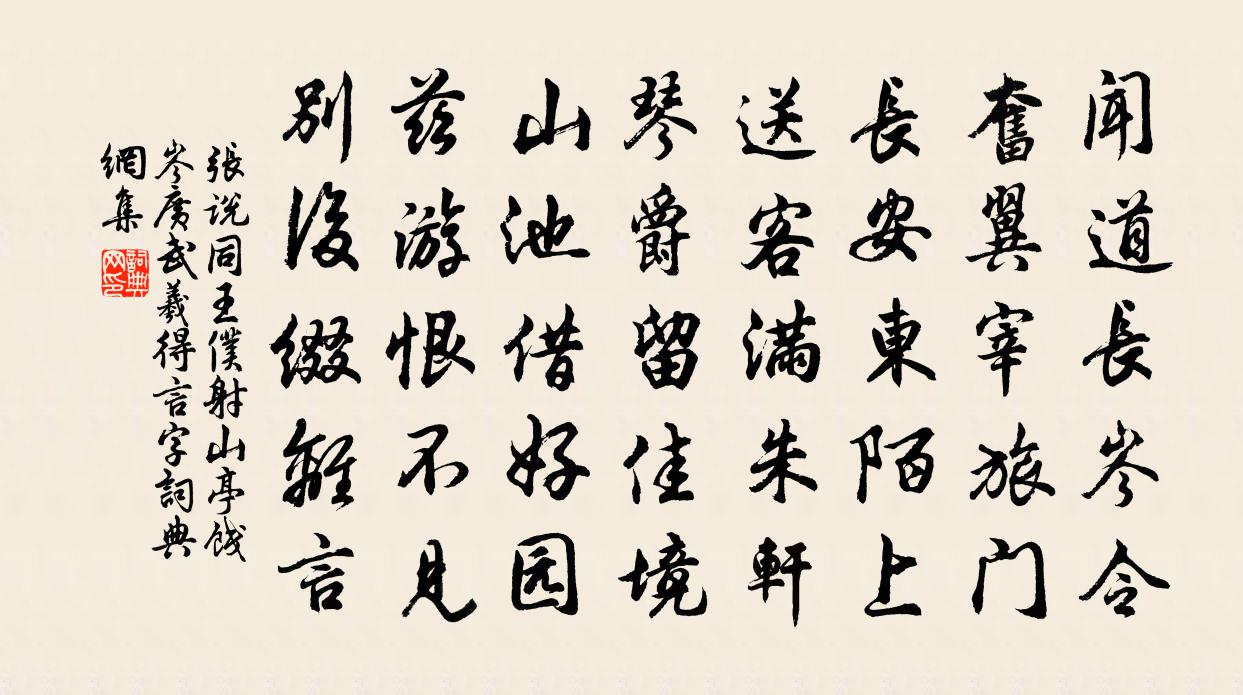 闻道長岑令
奮翼宰旅门
長安東陌上
送客滿朱軒
琴爵留佳境
山池借好园
茲游恨不見
别後缀離言
張説同王僕射山亭餞
岑廣武羲得言字詞典
網集
詞典網印